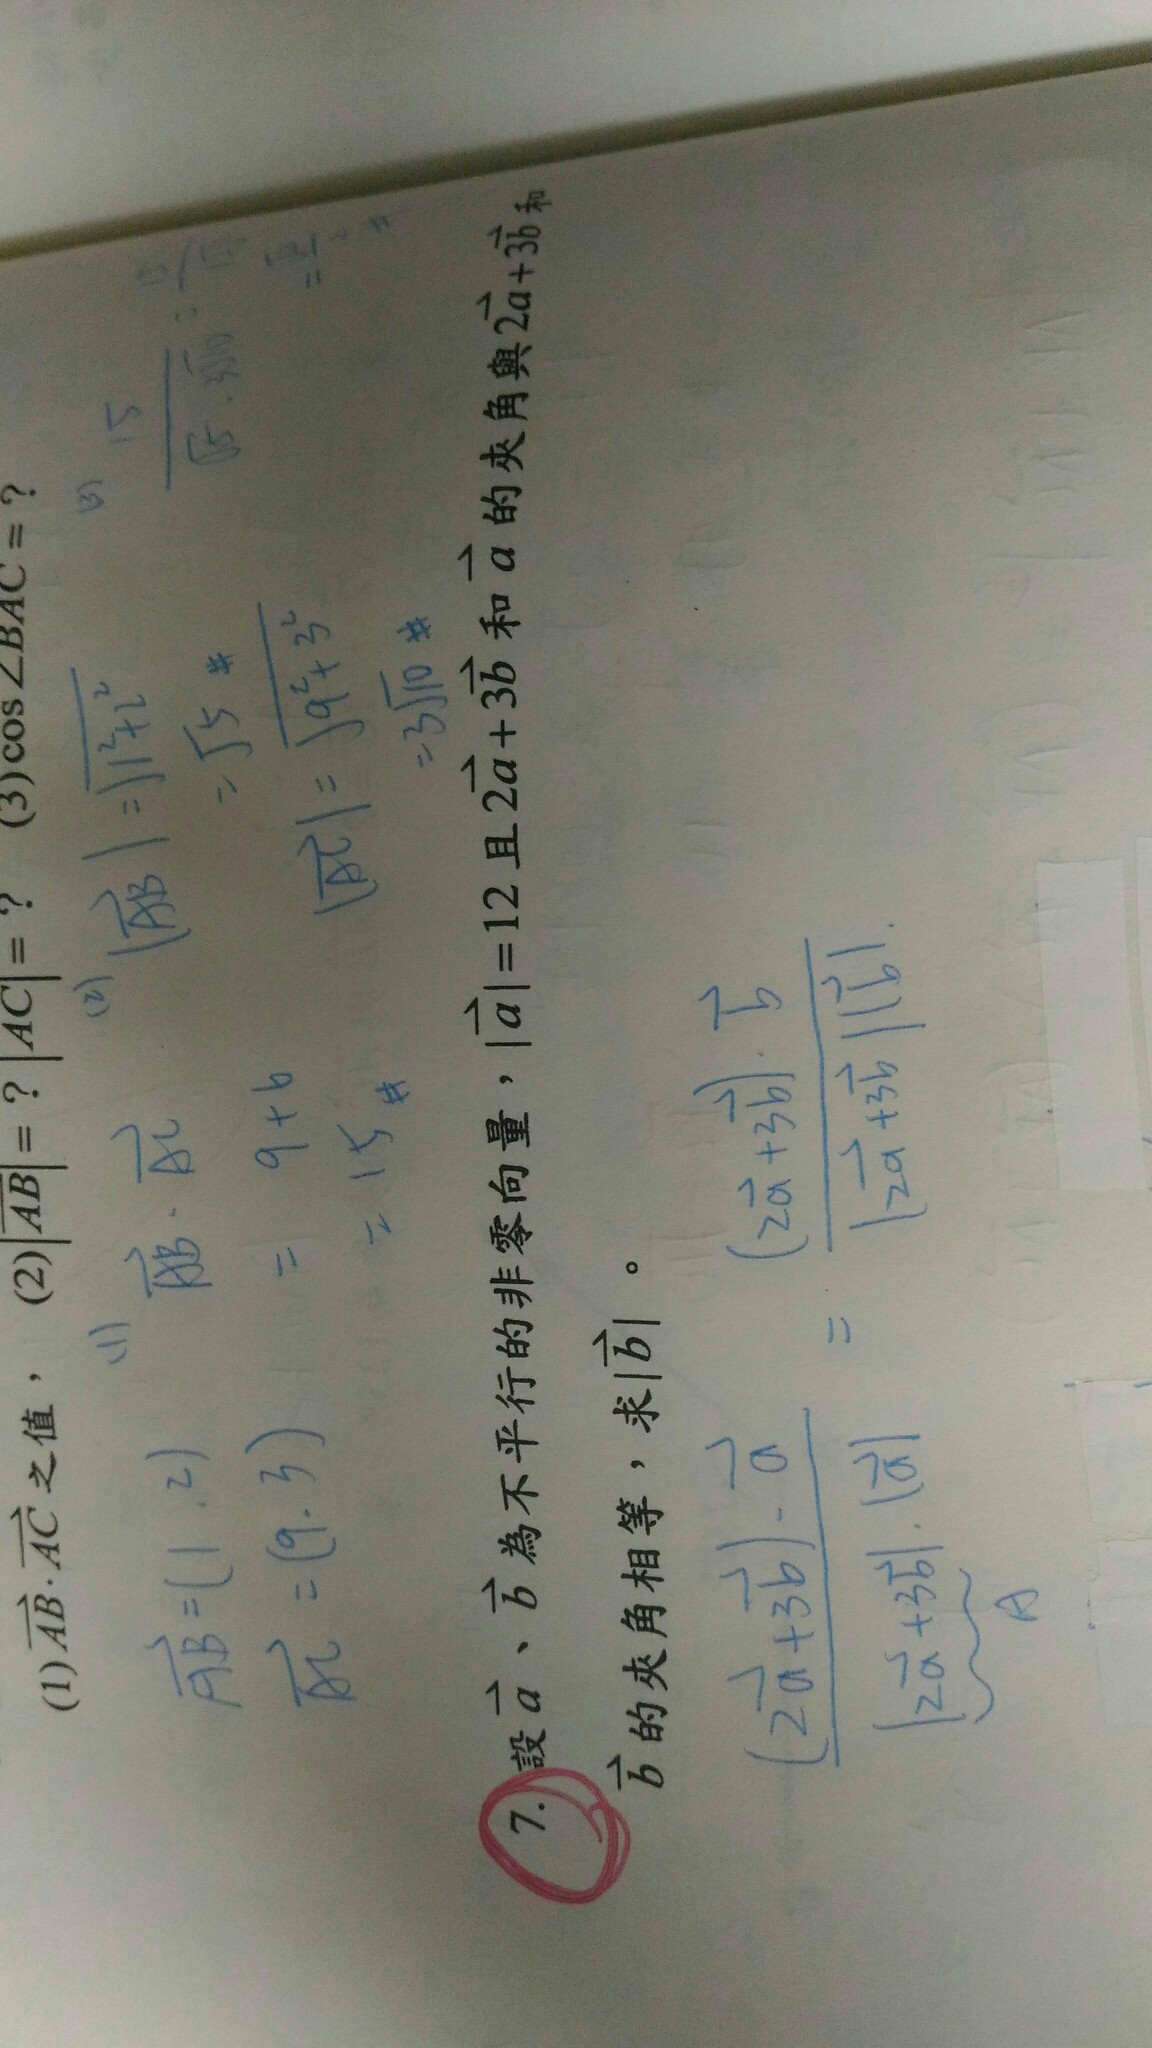 (1) AB⃗·AC⃗ 之值，(2)|AB⃗|=？|AC⃗|=？ (3)cos∠BAC=？
AB⃗=(1.2)
AC⃗=(9.3)
(1) AB⃗·AC⃗
= 9+6
= 15 #
(2) |AB⃗|=√1²+2²
=√5 #
|AC⃗|=√9²+3²
=3√10 #
(3) 15
√5·3√10
7. 設a⃗、b⃗為不平行的非零向量，|a⃗|=12且2a⃗+3b⃗和a⃗的夾角與2a⃗+3b⃗和
b⃗的夾角相等，求|b⃗|。
(2a⃗+3b⃗)·a⃗ = (2a⃗+3b⃗)·b⃗
|2a⃗+3b⃗|·|a⃗| |2a⃗+3b⃗||b⃗|
A